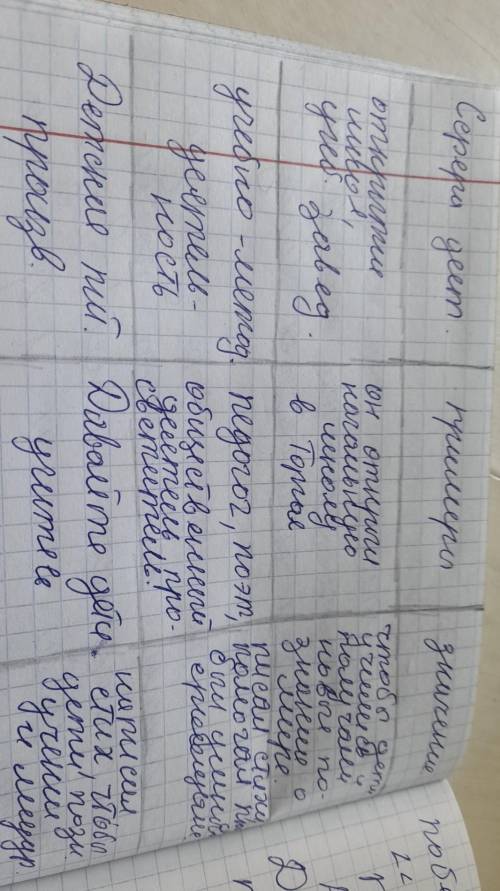 Сфера деят.
примеры
значение
открытие
школ,
учеб. завед.
он открыл
начальную
школу
в Торгае
чтобы дети
учились и
получали
новые по-
знания о
мире.
учебно-метод.
деятель-
ность
педагог, поэт,
общественный
деятель про-
светитель.
писал стихи
помогал
был
Детские
произв.
Давайте дети
учиться
написал
стих чтобы
дети
учени
и